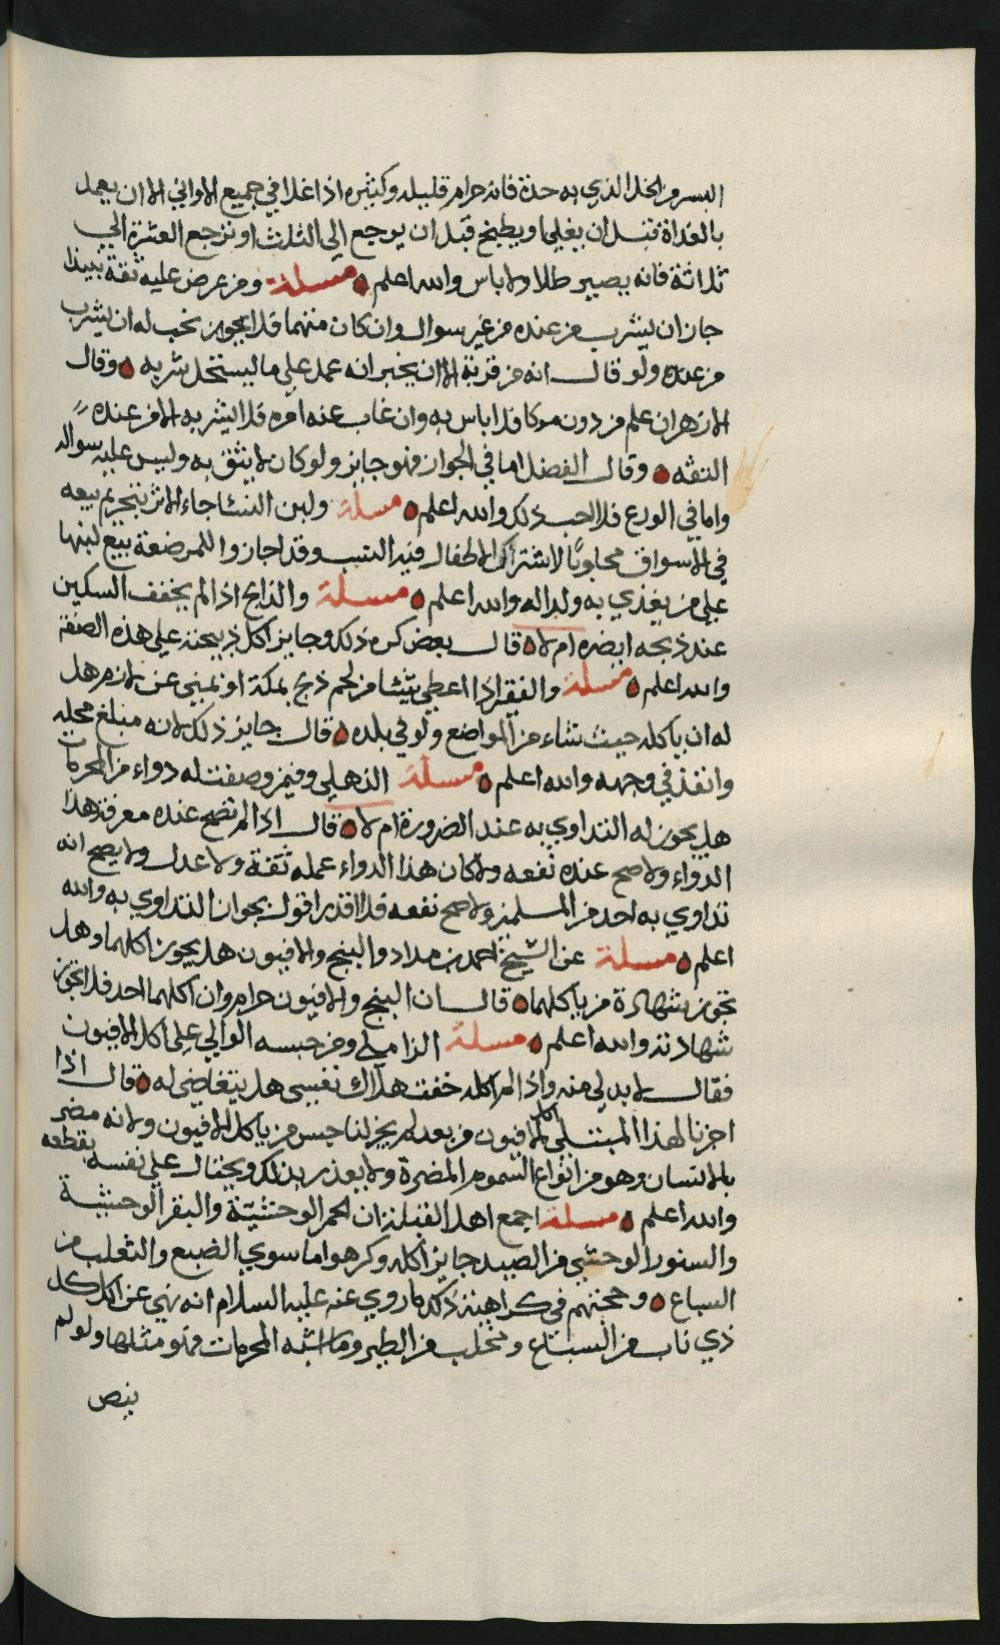 البسر من الخل الذي به حدة فانه حرام قليله وكثيره اذا غلا في جميع الاواني الا ان يعمل
بالغداة قبل ان يغلي او يطبخ قبل ان يرجع الي الثلث او ترجع العشرة الي
ثلاثة فانه يصير طلا ولا باس والله اعلم مسلة ومن عرض عليه ثقة نبيذا
جاز ان يشرب من عنده من غير سوال وان كان متهما فلا يجوز نحب له ان يشرب
من عنده ولو قال انه من قربة الا ان يخبر انه عمد علي ما يستحل شربه وقال
الازهر ان علم من دون موكا فلا باس به وان غاب عنه امره فلا يشربه الا من عند
الثقه وقال الفضل اما في الجواز فهو جايز ولو كان لا يثق به وليس عليه سواله
واما في الورع فلا احب ذلك والله اعلم مسلة ولبن النسا جاء الاثر بتحريم بيعه
في الاسواق محلوبا لاشتراك الاطفال فيه النسب وقد اجازوا للمرضعة بيع لبنها
علي من يغذي به ولدا له والله اعلم مسلة والذابح اذا لم يخفف السكين
عند ذبحه ايضره ام لا قال بعض كره ذلك وجايز اكل ذبيحته علي هذه الصفة
والله اعلم مسلة والفقير اذا اعطي شيئا من لحم ذبح بمكة او بمني عن لازم هل
له ان ياكله حيث شاء من المواضع ولو في بلده قال جايز ذلك لانه مبلغ محله
وانفذ في وجهه والله اعلم مسلة الذهلي وفيمن وصفت له دواء من المحرمات
هل يجوز له التداوي به عند الضرورة ام لا قال اذا لم تصح عنده معرفة هذا
الدواء ولا صح عنده نفعه ولا كان هذا الدواء عمله ثقة ولا عدل ولا يصح انه
تداوي به احد من المسلمين ولا صح نفعه فلا اقدر اقول بجواز التداوي به والله
اعلم مسلة عن الشيخ احمد بن مداد والبنج والافيون هل يجوز اكلهما وهل
تجوز شهادة من ياكلهما قال ان البنج والافيون حرام وان اكلهما احد فلا تجوز
شهادته والله اعلم مسلة الزاملي ومن حبسه الوالي علي اكل الافيون
فقال لا بد لي منه واذا لم اكله خفت هلاك نفسي هل يتغاضي له قال اذا
اجزنا لهذا المبتلي اكل الافيون من بعد لم يجز لنا حبس من ياكل الافيون ولانه مضر
بالانسان وهو من انواع السموم المضرة ولا يعذر بذلك ويحتال علي نفسه بقطعه
والله اعلم مسلة اجمع اهل القبلة ان الحمر الوحشية والبقر الوحشية
والسنور الوحشي من الصيد جايز اكله وكرهوا ما سوي الضبع والثعلب من
السباع وحجتهم في كراهية ذلك ما روي عنه عليه السلام انه نهي عن اكل كل
ذي ناب من السباع ومخلب من الطير وما اشبه المحرمات فهو مثلها ولو لم
ينص